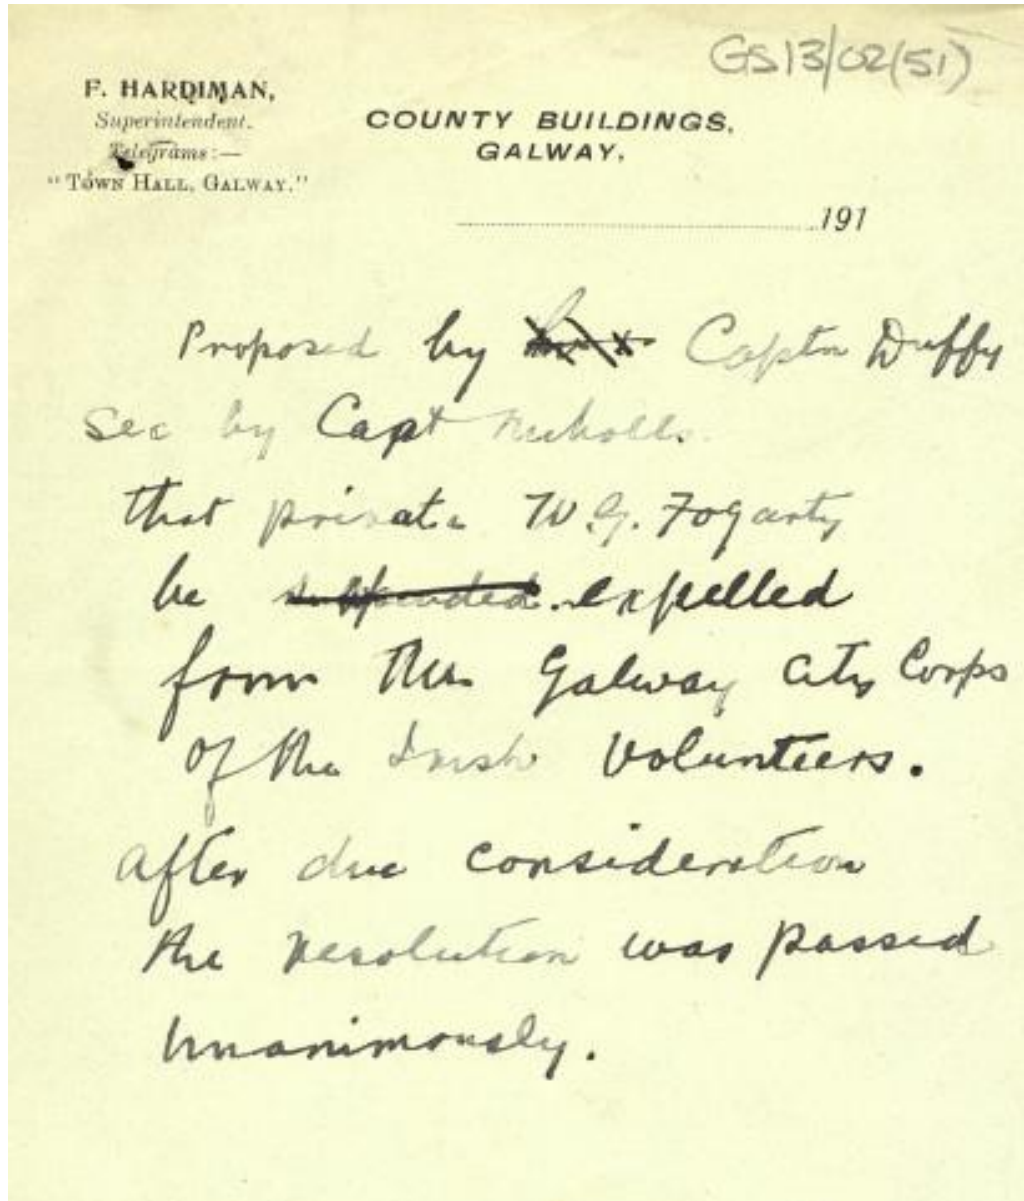 GS13/02(51)
F. HARDIMAN,
Superintendent.
Telegrams:—
"TOWN HALL, GALWAY."
COUNTY BUILDINGS,
GALWAY,
191
Proposed by Captn Duffy
sec by Capt Nicholls.
that private W.G. Fogarty
be suspended expelled
from the Galway City Corps
of the Irish Volunteers.
after due consideration
the resolution was passed
unanimously.